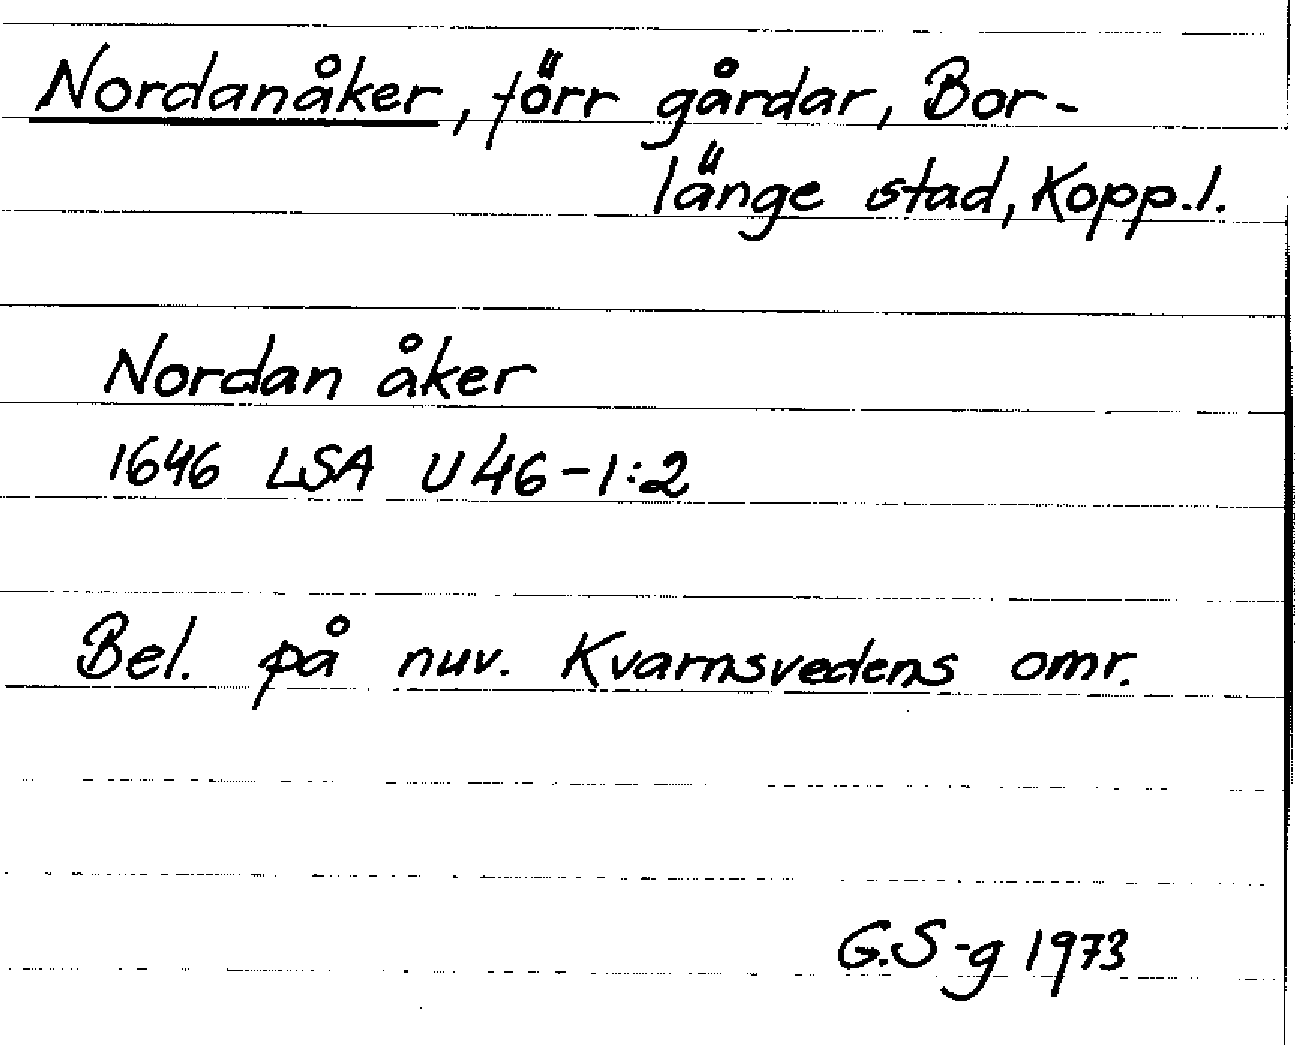 Nordanåker, förr gårdar, Bor-
länge stad, Kopp.l.
Nordan åker
1646 LSA U46-1:2
Bel. på nuv. Kvarnsvedens omr.
G.S-g 1973